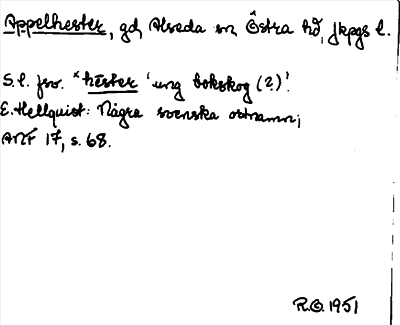 Appelhester, gd, Alseda sn, Östra hd, Jkpgs l.
S. l. fsv. *hēster 'ung bokskog (?)'.
E. Hellquist: Några svenska ortnamn;
ANF 17, s. 68.
R.O. 1951